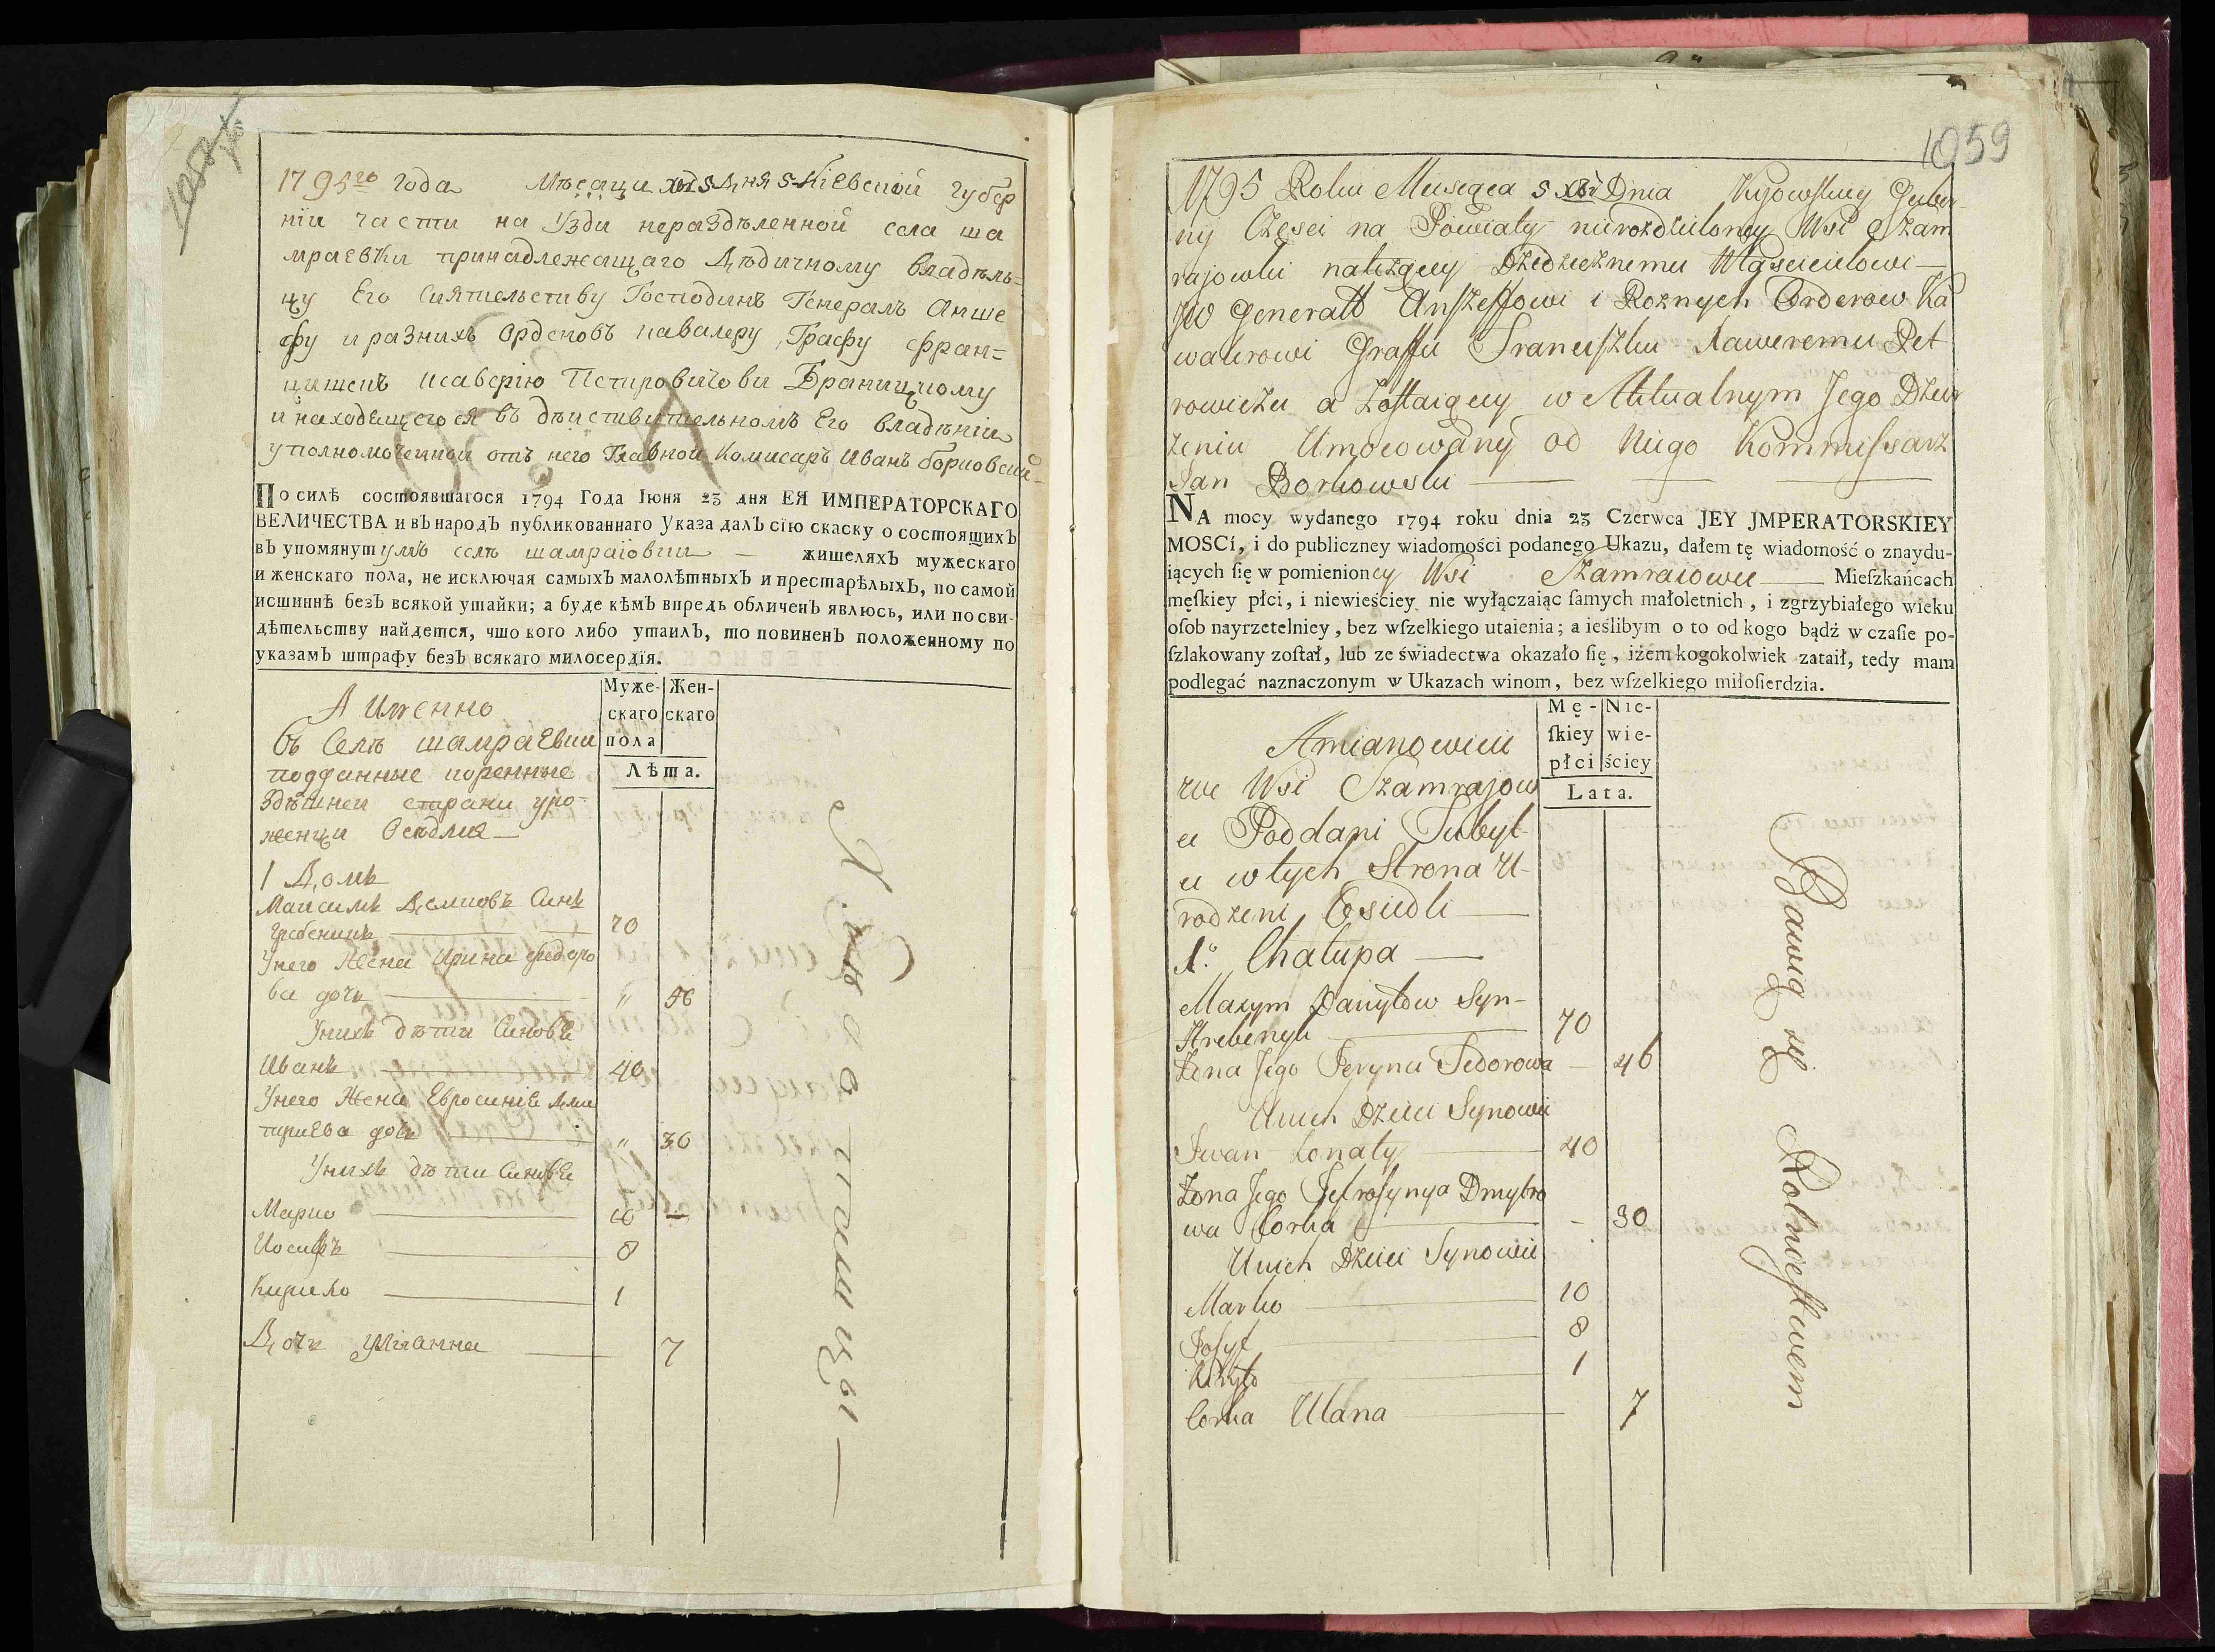 1795го года Мѣсаца дня 5 Кіевской губер
ніи части на Узди нераздѣленной села ша
мраевки принадлежащаго Дѣдичному владѣль=
цу Его Сиятельству Господинъ Генералъ Анше
фу и разнихъ Орденовъ кавалеру, Графу фран=
цишекъ ксаверію Петровичови Браницкому
и находящегося въ дѣиствительномъ Его владѣніи
уполномоченной отъ него Главной Комисаръ Иванъ борковский
По силѣ состоявшагося 1794 Года Іюня 23 дня ЕЯ ИМПЕРАТОРСКАГО
ВЕЛИЧЕСТВА и въ народъ публикованнаго Указа далъ сїю скаску о состоящихъ
въ упомянутумъ селѣ шамраіовки — жителяхъ мужескаго
и женскаго пола, не исключая самыхъ малолѣтныхъ и престарѣлыхъ, по самой
истиннѣ безъ всякой утайки; а буде кѣмъ впредь обличенъ явлюсь, или по сви-
дѣтельству найдется, что кого либо утаилъ, то повиненъ положенному по
указамъ штрафу безъ всякаго милосердїя.
Муже- Жен-
скаго скаго
пола
Лѣта.
А Именно
въ Селѣ шамраевки
подданные коренные
здѣшней старани уро-
женци Осѣдлие —
1 Домъ
Максимъ Демковъ Синъ
Гребеникъ — 70
Унего Жена Ирина федоро
ва дочь — " 46
Унихъ дѣти Синовѣ
Иванъ — 40
Унего Жена Евросиніе Дми
триева дочь — " 30
Унихъ дѣти Синовѣ
Марко — 10 —
Иосифъ — 8
Кирило — 1
Дочь Улianна — 7
1059
1795 Roku Miesąca 5 Dnia Kyjowskiey Guber-
nij Częsci na Powiaty nierozdzieloney Wsi Szam
rajowki należącey Dziedzicznemu Włascicielowi —
JW Generałł Anszeffowi i Roznych Orderow Ka
walerowi Graffu Franciszku Xaweremu Pet
rowiczu a zostaiącey w Aktualnym Jego Dzier
żeniu Umocowany od Niego Kommissarz
Jan Borkowski —
NA mocy wydanego 1794 roku dnia 23 Czerwca JEY JMPERATORSKIEY
MOSCI, i do publiczney wiadomości podanego Ukazu, dałem tę wiadomość o znaydu-
iących ſię w pomienioncy Wsi Szamraiowce — Mieſzkańcach
męſkiey płci, i niewieściey nie wyłączaiąc ſamych małoletnich, i zgrzybiałego wieku
oſob nayrzetelniey, bez wſzelkiego utaienia; a ieślibym o to od kogo bądź w czaſie po-
ſzlakowany zoſtał, lub ze świadectwa okazało ſię, iżem kogokolwiek zataił, tedy mam
podlegać naznaczonym w Ukazach winom, bez wſzelkiego miłoſierdzia.
Mę- Nie-
ſkiey wie-
płci ściey
Lata.
Amianowicie
we Wsi Szamrajow
ce Poddani Tubyl-
ce w tych Strona U-
rodzeni Osiedli —
1.o Chałupa —
Maxym Danyłow Syn —
Hrebenyk — 70
Żona Jego Jeryna Fedorowa — 46
U nich Dzieci Synowie
Jwan Żonaty — 40
Żona Jego Jefrosynya Dmytro
wa Corka — - 30
U nich Dzieci Synowie
Marko — 10
Josyf — 8
Kiryło — 1
Corka Ulana — 7
Bawią się Rolnictwem